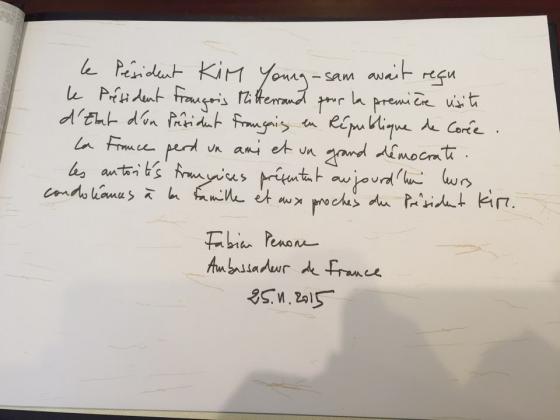 Le Président KIM Young-sam avait reçu
le Président François Mitterrand pour la première visite
d'Etat d'un Président Français en République de Corée.
La France perd un ami et un grand démocrate.
Les autorités françaises présentent aujourd'hui leurs
condoléances à la famille et aux proches du Président KIM.
Fabien Penone
Ambassadeur de France
25.11.2015